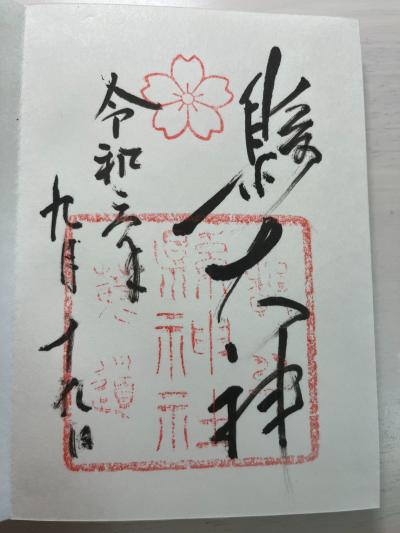 縣大神
縣神社
令和六年
九月十九日